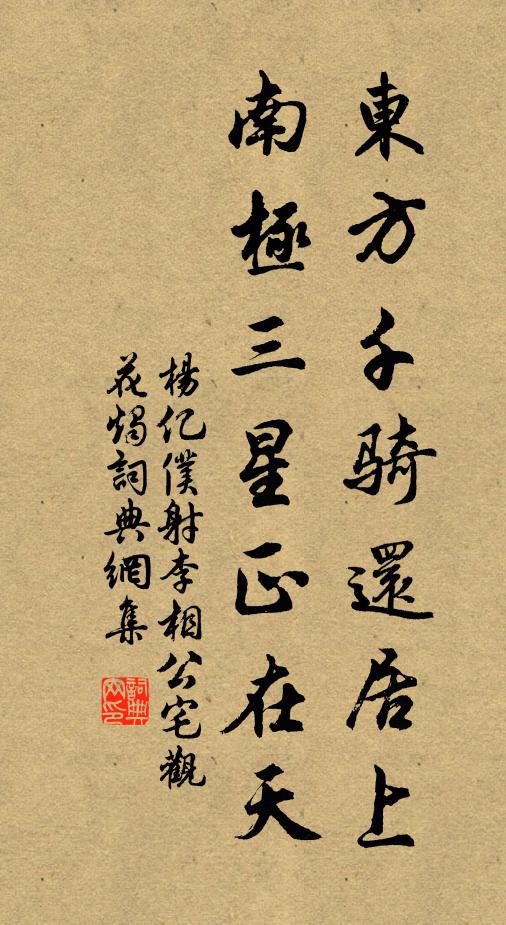 東方千騎還居上
南極三星正在天
楊亿僕射李相公宅觀
花燭詞典網集
詞典